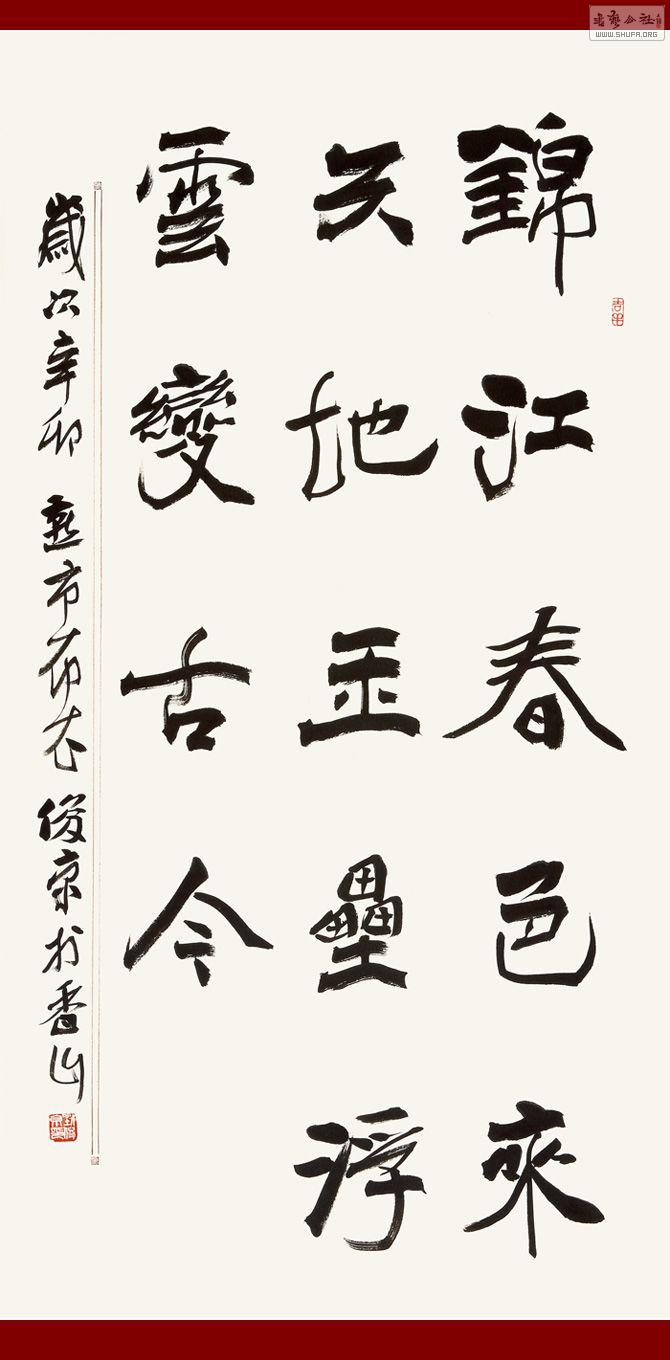 錦江春色來
天地玉壘浮
雲變古今
歲次辛卯 燕市布衣 俊京於香山
書藝公社
WWW.SHUFA.ORG